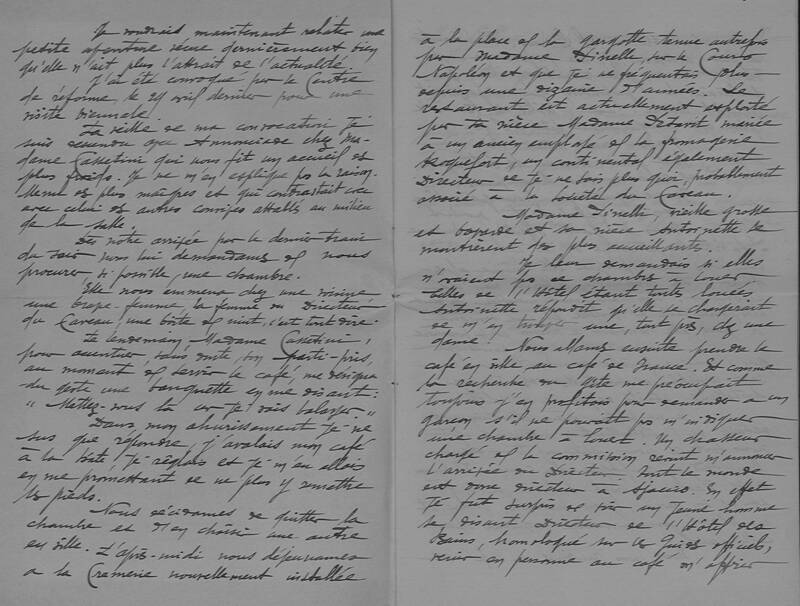 Je voudrais maintenant relater une
petite aventure vécue dernièrement bien
qu'elle n'ait plus l'attrait de l'actualité.
J'ai été convoqué par le Centre
de réforme, le 29 avril dernier pour une
visite biennale.
La veille de ma convocation je
suis descendu avec Annonciade chez Ma-
dame Casetini qui nous fit un accueil des
plus froids. Je ne m'en explique pas la raison.
Menu des plus maigres et qui contrastait
avec celui des autres convives attablés au milieu
de la salle.
Dès notre arrivée par le dernier train
du soir nous lui demandâmes de nous
procurer, si possible, une chambre.
Elle nous emmena chez une voisine
une brave femme, la femme du Directeur
du Caveau, une boîte de nuit, c'est tout dire.
Le lendemain, Madame Casetini,
pour accentuer, sans doute, son parti-pris,
au moment de servir le café, me désigna
du geste une banquette en me disant :
"Mettez-vous là car je vais balayer."
Dans mon ahurissement je ne
sus que répondre, j'avalais mon café
à la hâte, je réglais et je m'en allais
en me promettant de ne plus y remettre
les pieds.
Nous décidâmes de quitter la
chambre et d'en choisir une autre
en ville. L'après-midi nous déjeunâmes
à la Cremerie nouvellement installée
à la place de la gargotte tenue autrefois
par Madame Dinelle, sur le Cours
Napoléon et que je ne fréquentais plus
depuis une dizaine d'années. Le
restaurant est actuellement exploité
par sa nièce Madame mariée
à un ancien employé de la fromagerie
Roquefort, un continental également
Directeur de je ne sais plus quoi, probablement
associé à la Société du Caveau.
Madame Dinelle, vieille grosse
et bavarde et sa nièce Antoinette se
montrèrent des plus accueillants.
Je leur demandais si elles
n'avaient pas de chambre à louer
celles de l'Hôtel étant toutes louées
Antoinette répondit qu'elle se chargerait
de m'en trouver une, tout près, chez une
dame !
Nous allâmes ensuite prendre le
café en ville au café de France. Et comme
la recherche du gîte me préoccupait
toujours j'en profitais pour demander à un
garçon s'il ne pouvait pas m'indiquer
une chambre à louer. Un chasseur
chargé de la commission revint m'annoncer
l'arrivée du Directeur. Tout le monde
est donc directeur à Ajaccio. En effet
je fus surpris de voir un jeune homme
se disant Directeur de l'Hôtel des
Bains, homologué sur les Guides officiels,
venir en personne au café m'offrir